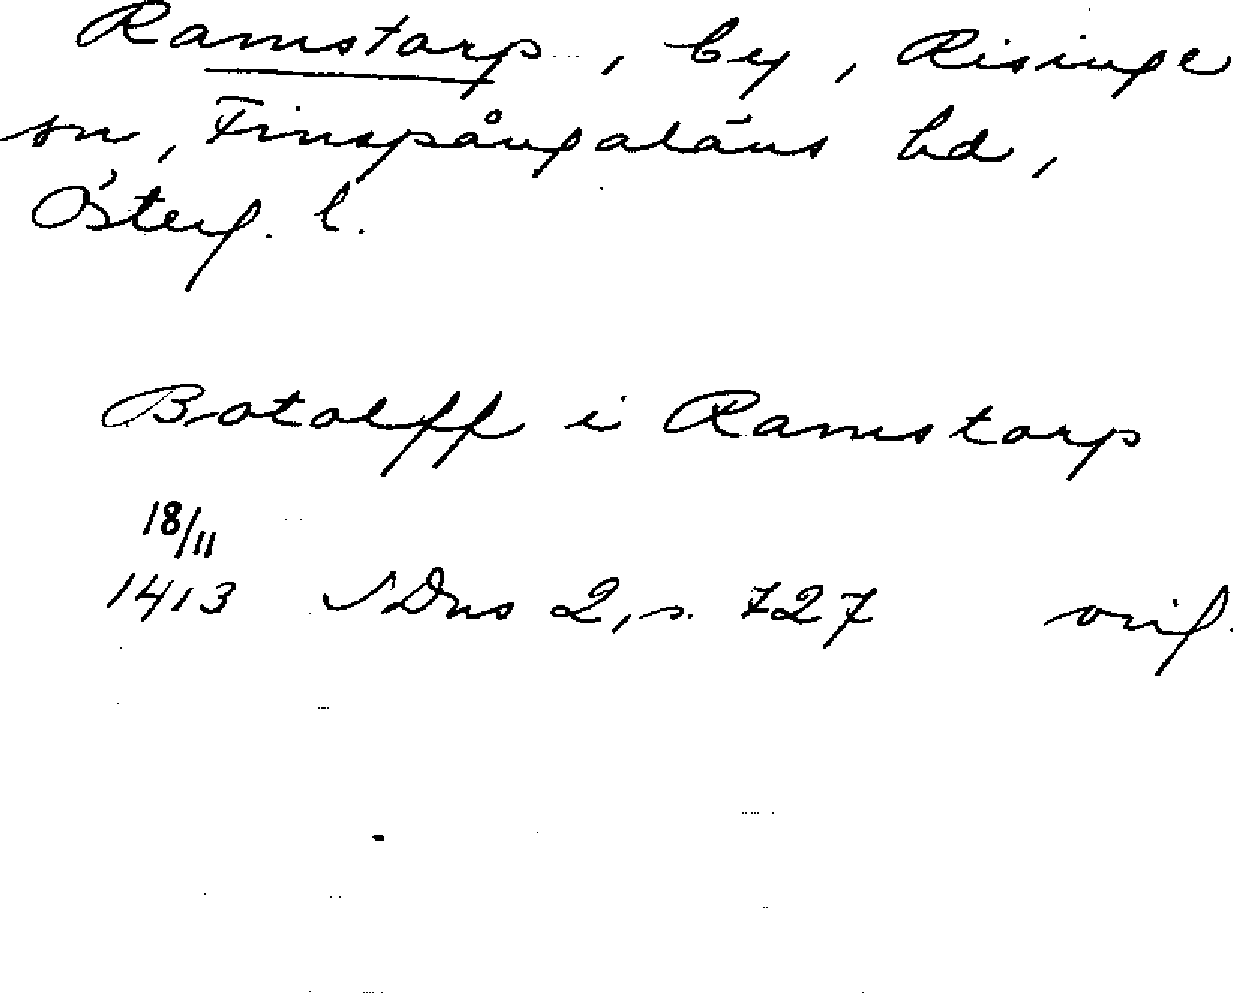 Ramstorp, by, Risinge
sn, Finspångaläns hd,
Österg. l.
Botolff i Ramstorp
18/11
1413 SDns 2, s. 727 orig.